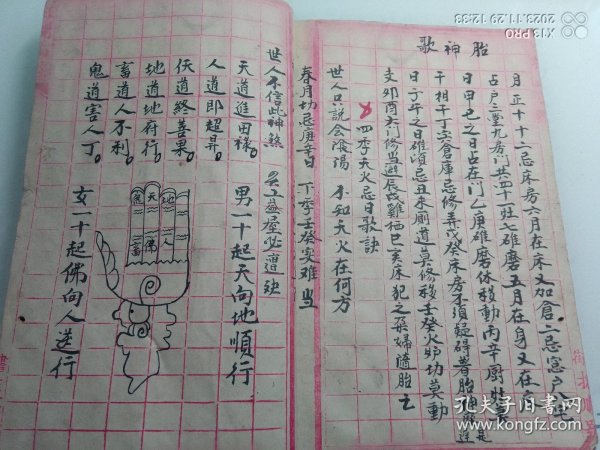 胎神歌
正十十二忌床房六月在床又加倉二忌窓戶
占戶三堂九房門共四十灶七碓磨五月在身又在
日甲己之日占在门乙庚碓磨休移動丙辛厨灶莫
干相干丁壬倉庫忌修弄戊癸床房不須疑碍着胎神
日子午之日碓须忌丑未厕道莫修移寅申火炉切莫動
支卯酉大门修当避辰戌雞栖巳亥床犯之孕婦隨胎亡
四季天火忌日歌訣
世人只說会陰陽 不知天火在何方
春月切忌庚辛日 下季壬癸实难当
世人不信此神煞 盖屋必遭殃
天道進田禄。
人道即超昇。
佛道終善果。
地道地府行。
畜道人不利。
鬼道害人丁。
男一十起天向地順行
女一十起佛向人逆行
天
地
人
佛
鬼
畜
2023.11.29 12:33
X3 PRO
孔夫子旧书网
www.kongfz.com